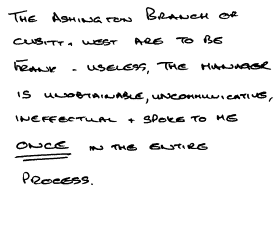 THE ASHINGTON BRANCH OF
CUBITT & WEST ARE TO BE
FRANK - USELESS, THE MANAGER
IS UNOBTAINABLE, UNCOMMUNICATIVE,
INEFFECTUAL + SPOKE TO ME
ONCE IN THE ENTIRE
PROCESS.